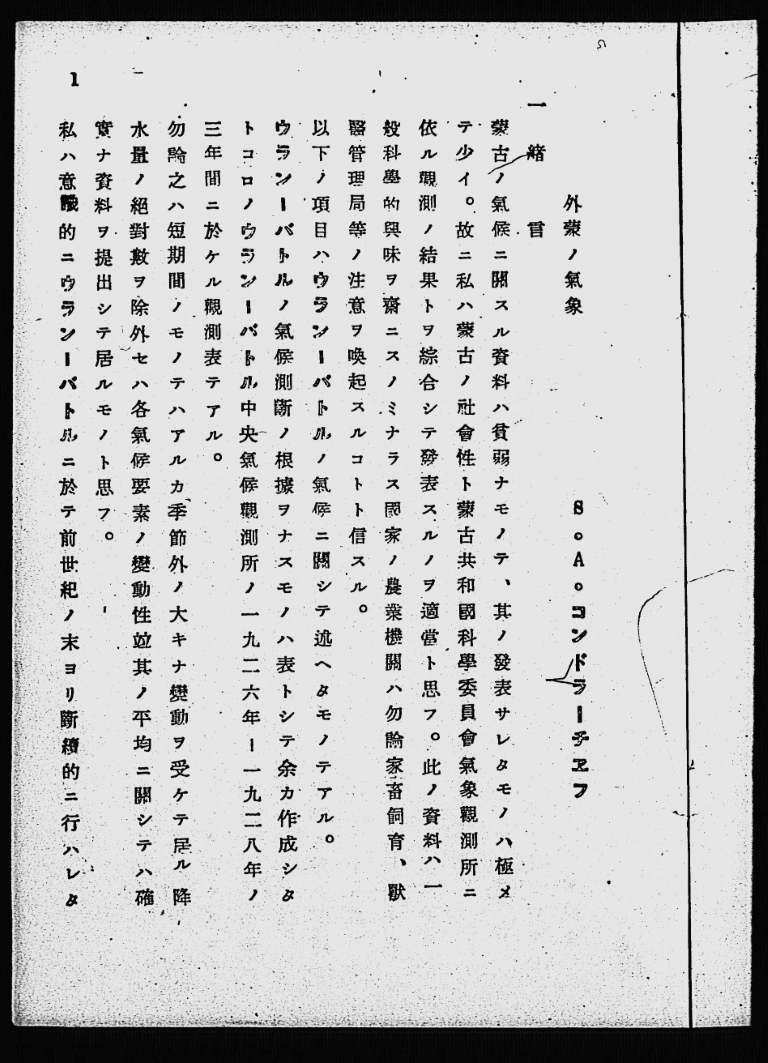 外蒙ノ氣象
S。A。コンドラーチエフ
一 緒言
蒙古ノ氣候ニ關スル資料ハ貧弱ナモノテ、其ノ發表サレタモノハ極メ
テ少イ。故ニ私ハ蒙古ノ社會性ト蒙古共和國科學委員會氣象觀測所ニ
依ル觀測ノ結果トヲ綜合シテ發表スルノヲ適當ト思フ。此ノ資料ハ一
般科學的興味ヲ齋ニスノミナラス國家ノ農業機關ハ勿論家畜飼育、獸
醫管理局等ノ注意ヲ喚起スルコトト信スル。
以下ノ項目ハウランーバトルノ氣候ニ關シテ述ヘタモノテアル。
ウランーバトルノ氣候測斷ノ根據ヲナスモノハ表トシテ余カ作成シタ
トコロノウランーバトル中央氣候觀測所ノ一九二六年ー一九二八年ノ
三年間ニ於ケル觀測表テアル。
勿論之ハ短期間ノモノテハアルカ季節外ノ大キナ變動ヲ受ケテ居ル降
水量ノ絕對數ヲ除外セハ各氣候要素ノ變動性竝其ノ平均ニ關シテハ確
實ナ資料ヲ提出シテ居ルモノト思フ。
私ハ意識的ニウランーバトルニ於テ前世紀ノ末ヨリ斷續的ニ行ハレタ
1